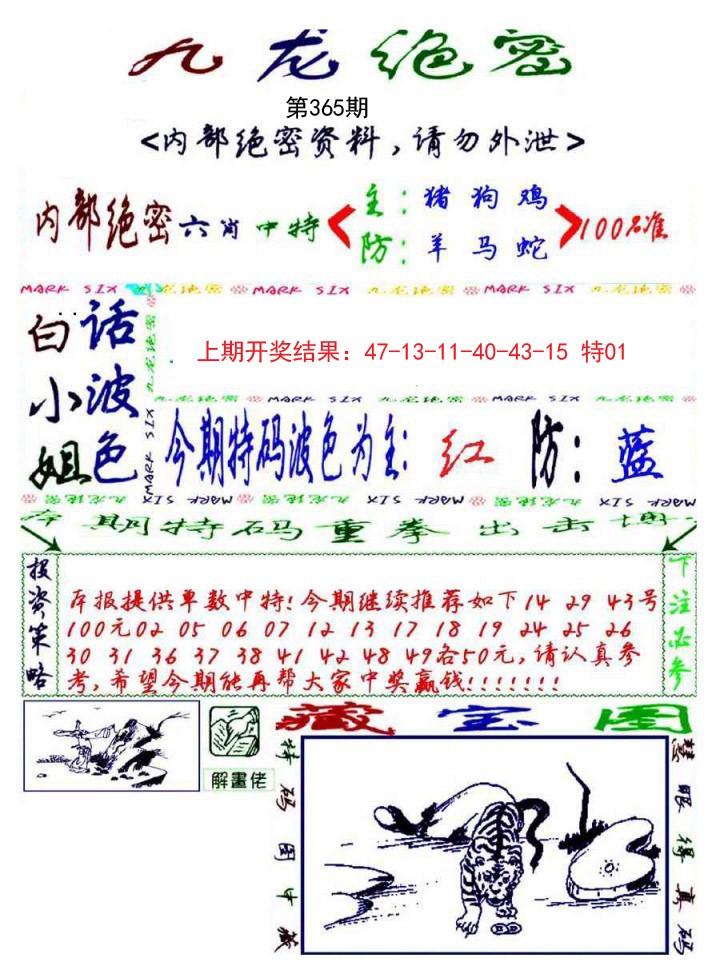 九龙绝密
第365期
<内部绝密资料,请勿外泄>
内部绝密六肖中特
主:猪 狗 鸡
防:羊 马 蛇
100%准
MARK SIX 九龙绝密 MARK SIX 九龙绝密 MARK SIX 九龙绝密
白话
小波
姐色
九龙绝密
MARK SIX
上期开奖结果:47-13-11-40-43-15 特01
九龙绝密 MARK SIX 九龙绝密 MARK SIX 九龙绝密
今期特码波色为主:红 防:蓝
九龙绝密 MARK SIX 九龙绝密 MARK SIX 九龙绝密 MARK SIX
本期特码重拳出击博
投资策略
本报提供单数中特!今期继续推荐如下14 29 43号
100元02 05 06 07 12 13 17 18 19 24 25 26
30 31 36 37 38 41 42 48 49各50元,请认真参
考,希望今期能再帮大家中奖赢钱!!!!!!!
下注必参
藏宝图
解畫佬
特码图中藏
慧眼得真码